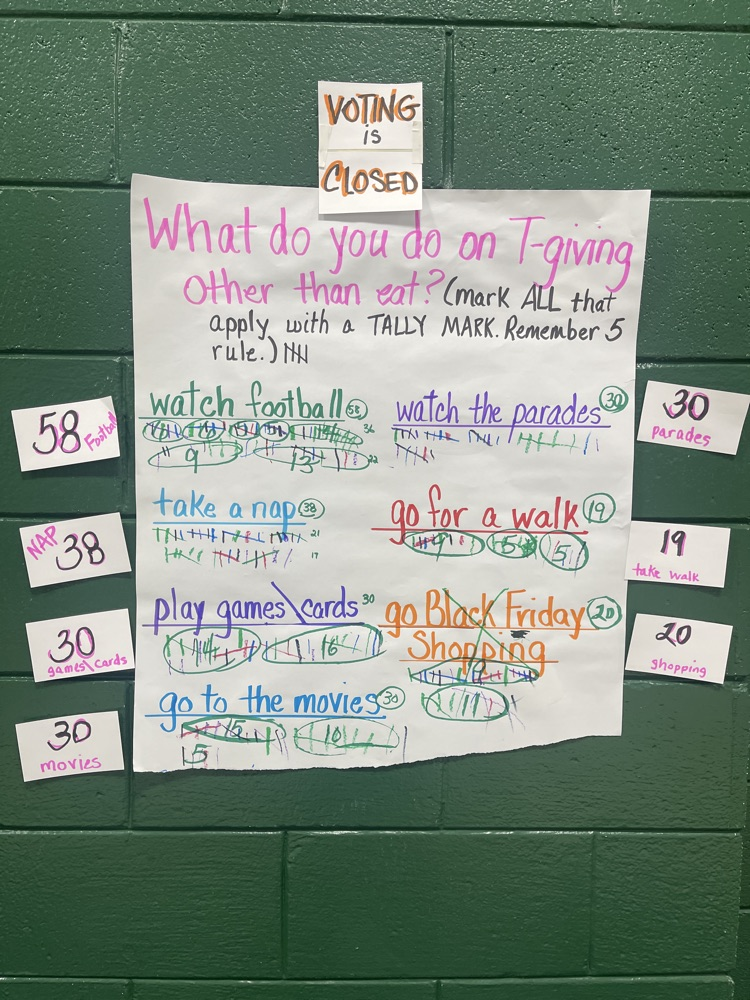 VOTING
is
CLOSED
What do you do on T-giving
Other than eat? (mark ALL that
apply with a TALLY MARK. Remember 5
rule.)
watch football 58
36
9 13 22
watch the parades 30
take a nap 38
21
17
go for a walk 19
5 5
play games\cards 30
14 16
go Black Friday 20
Shopping
9
11
go to the movies 30
15 10
5
58 Football
NAP 38
30
games\cards
30
movies
30
parades
19
take walk
20
shopping